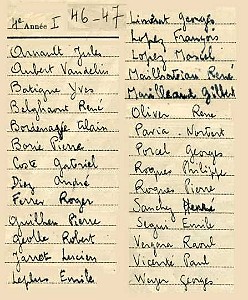 4e Année I 46-47
Arnault Jules
Aubert Vandelin
Batigne Yves
Belghanem René
Bordenagès Alain
Borie Pierre
Coste Gabriel
Diaz André
Ferrer Roger
Guilhem Pierre
Jarrot Lucien
Leplus Emile
Linarès Georges
Lopez François
Lopez Marcel
René
Gilbert
Oliver René
Pavia Norbert
Porcel Georges
Roques Philippe
Roques Pierre
Sanchez
Segui Emile
Vergara Raoul
Vicente Paul
Weyer Georges